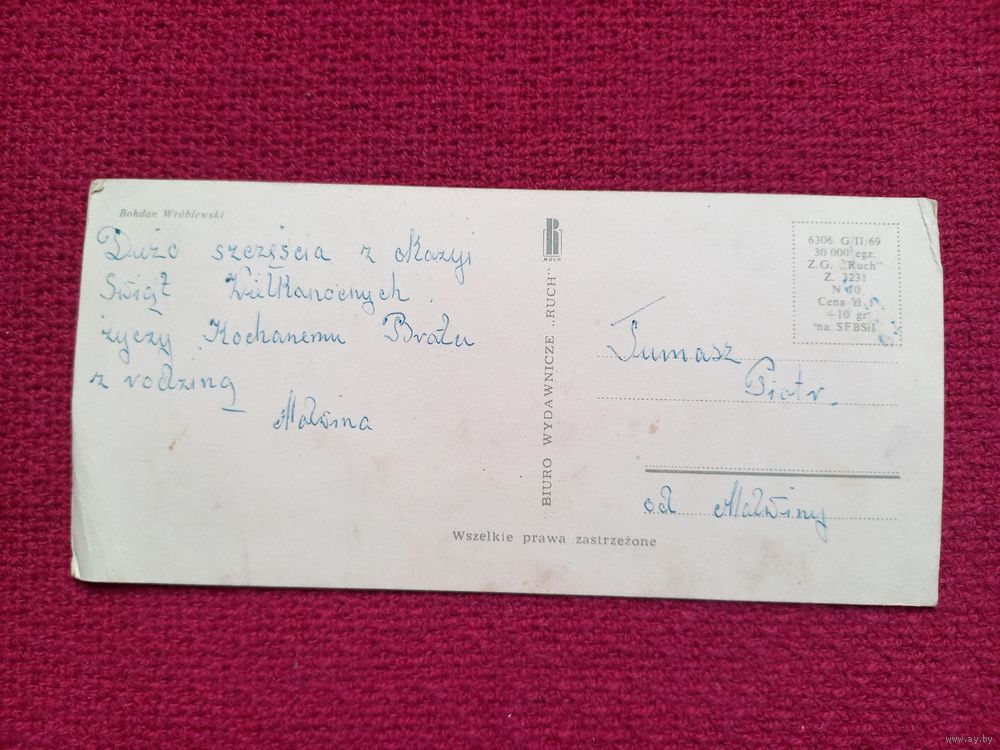 Bohdan Wróblewski
Dużo szczęścia z okazyi
Swiąt Wielkanocnych
życzy Kochanemu Bratu
z rodziną
Malwina
BIURO WYDAWNICZE „RUCH"
RUCH
6306 G/II/69
30 000 egz.
Z.G. „Ruch"
Z. 3231
N 10
Cena zł
+10 gr
na SFBSiI
Tumasz
Piotr.
od Malwiny
Wszelkie prawa zastrzeżone
www.ay.by